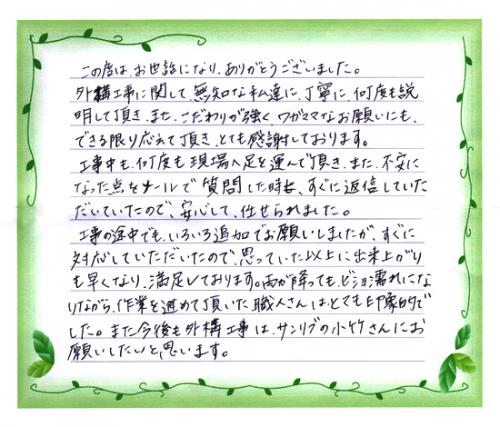 この度は、お世話になり、ありがとうございました。
外構工事に関して、無知な私達に、丁寧に、何度も説
明して頂き、また、こだわりが強く、ワガママなお願いにも、
できる限り応えて頂き、とても感謝しております。
工事中も、何度も現場へ足を運んで頂き、また、不安に
なった点をメールで質問した時も、すぐに返信していた
だいていたので、安心して、任せられました。
工事の途中でも、いろいろ追加でお願いしましたが、すぐに
対応していただいたので、思っていた以上に出来上がり
も早くなり、満足しております。雨が降っても、ビショ濡れにな
りながら、作業を進めて頂いた職人さんは、とても印象的で
した。また今後も外構工事は、サンリブの小竹さんにお
願いしたいと思います。